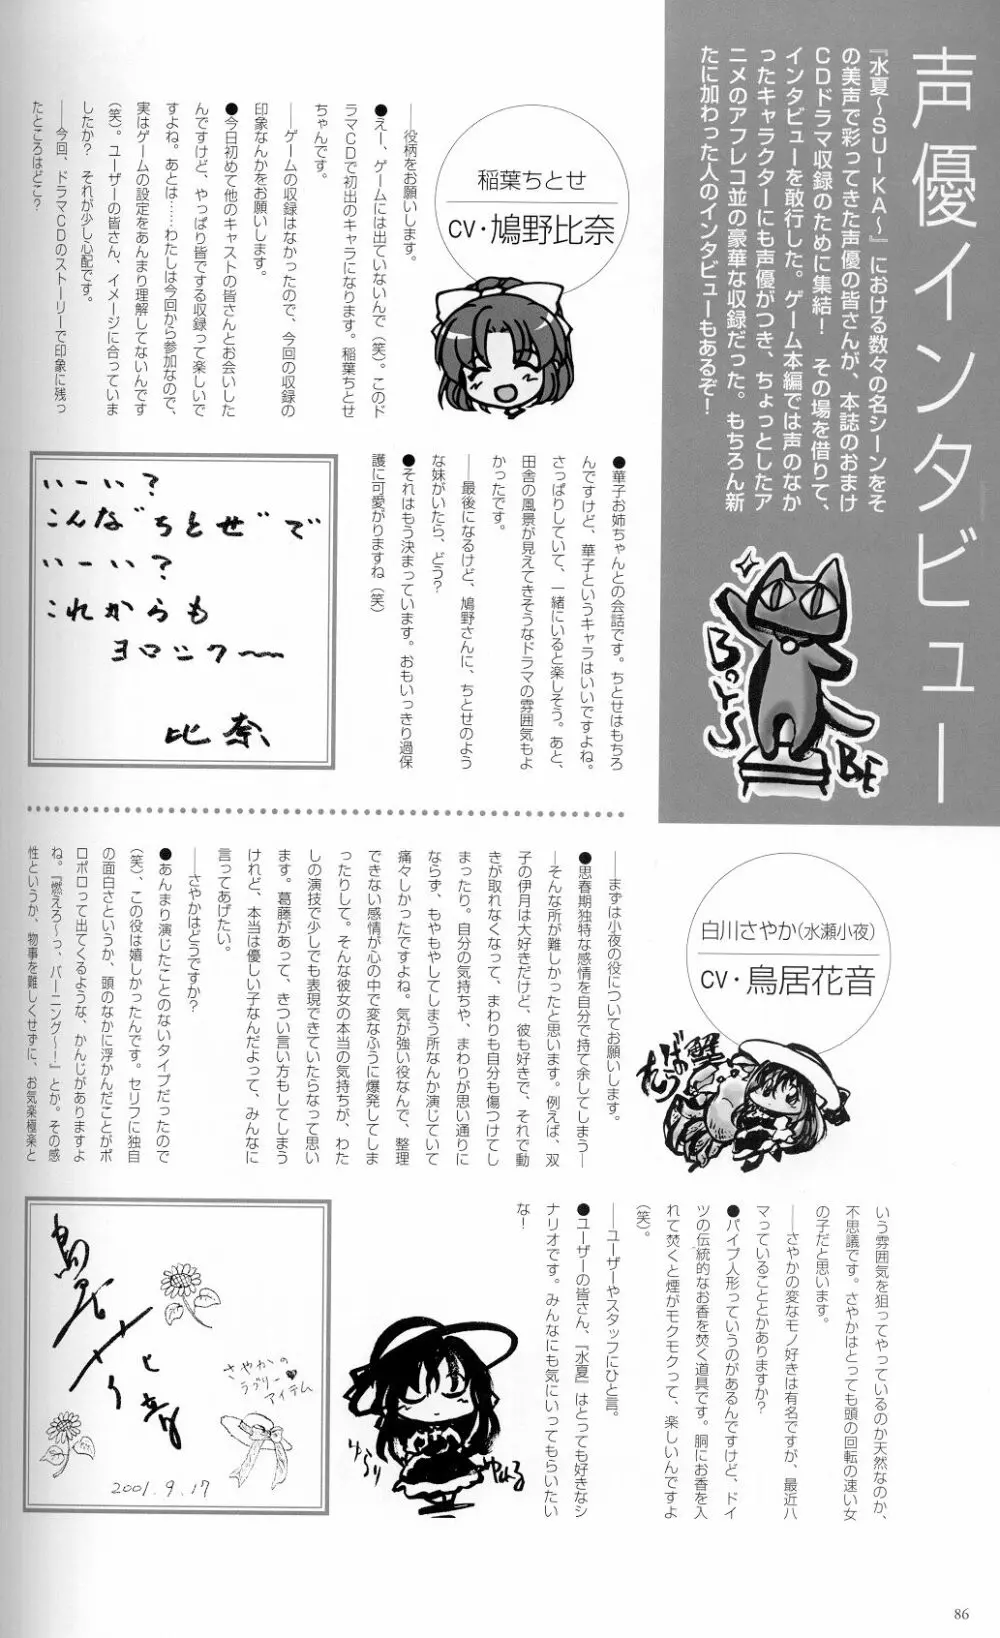 声優インタビュー
『水夏～SUIKA～』における数々の名シーンをそ
の美声で彩ってきた声優の皆さんが、本誌のおまけ
CDドラマ収録のために集結！　その場を借りて、
インタビューを敢行した。ゲーム本編では声のなか
ったキャラクターにも声優がつき、ちょっとしたア
ニメのアフレコ並の豪華な収録だった。もちろん新
たに加わった人のインタビューもあるぞ！
BOYS
BE
稲葉ちとせ
CV・鳩野比奈
――役柄をお願いします。
●えー、ゲームには出ていないんで（笑）。このド
ラマCDで初出のキャラになります。稲葉ちとせ
ちゃんです。
――ゲームの収録はなかったので、今回の収録の
印象なんかをお願いします。
●今日初めて他のキャストの皆さんとお会いした
んですけど、やっぱり皆でする収録って楽しいで
すよね。あとは……わたしは今回から参加なので、
実はゲームの設定をあんまり理解してないんです
（笑）。ユーザーの皆さん、イメージに合っていま
したか？　それが少し心配です。
――今回、ドラマCDのストーリーで印象に残っ
たところはどこ？
●華子お姉ちゃんとの会話です。ちとせはもちろ
んですけど、華子というキャラはいいですよね。
さっぱりしていて、一緒にいると楽しそう。あと、
田舎の風景が見えてきそうなドラマの雰囲気もよ
かったです。
――最後になるけど、鳩野さんに、ちとせのよう
な妹がいたら、どう？
●それはもう決まっています。おもいっきり過保
護に可愛がりますね（笑）
いーい？
こんな"ちとせ"で
いーい？
これからも
ヨロシク～
比奈
白川さやか（水瀬小夜）
CV・鳥居花音
――まずは小夜の役についてお願いします。
●思春期独特な感情を自分で持て余してしまう―
―そんな所が難しかったと思います。例えば、双
子の伊月は大好きだけど、彼も好きで、それで動
きが取れなくなって、まわりも自分も傷つけてし
まったり。自分の気持ちや、まわりが思い通りに
ならず、もやもやしてしまう所なんか演じていて
痛々しかったですよね。気が強い役なんで、整理
できない感情が心の中で変なふうに爆発してしま
ったりして。そんな彼女の本当の気持ちが、わた
しの演技で少しでも表現できていたらなって思い
ます。葛藤があって、きつい言い方もしてしまう
けれど、本当は優しい子なんだよって、みんなに
言ってあげたい。
――さやかはどうですか？
●あんまり演じたことのないタイプだったので
（笑）、この役は嬉しかったんです。セリフに独自
の面白さというか、頭のなかに浮かんだことがポ
ロポロって出てくるような、かんじがありますよ
ね。『燃えろ～っ、バーニング～！』とか。その感
性というか、物事を難しくせずに、お気楽極楽と
いう雰囲気を狙ってやっているのか天然なのか、
不思議です。さやかはとっても頭の回転の速い女
の子だと思います。
――さやかの変なモノ好きは有名ですが、最近ハ
マっていることとかありますか？
●パイプ人形っていうのがあるんですけど、ドイ
ツの伝統的なお香を焚く道具です。胴にお香を入
れて焚くと煙がモクモクって、楽しいんですよ
（笑）。
――ユーザーやスタッフにひと言。
●ユーザーの皆さん、『水夏』はとっても好きなシ
ナリオです。みんなにも気にいってもらいたい
な！
ゆらり
鳥居花音
さやかの
ラブリー♥
アイテム
2001.9.17
86